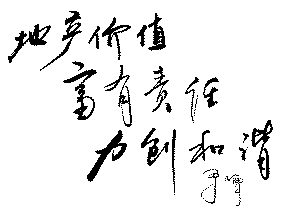 地产价值
富有责任
力创和谐